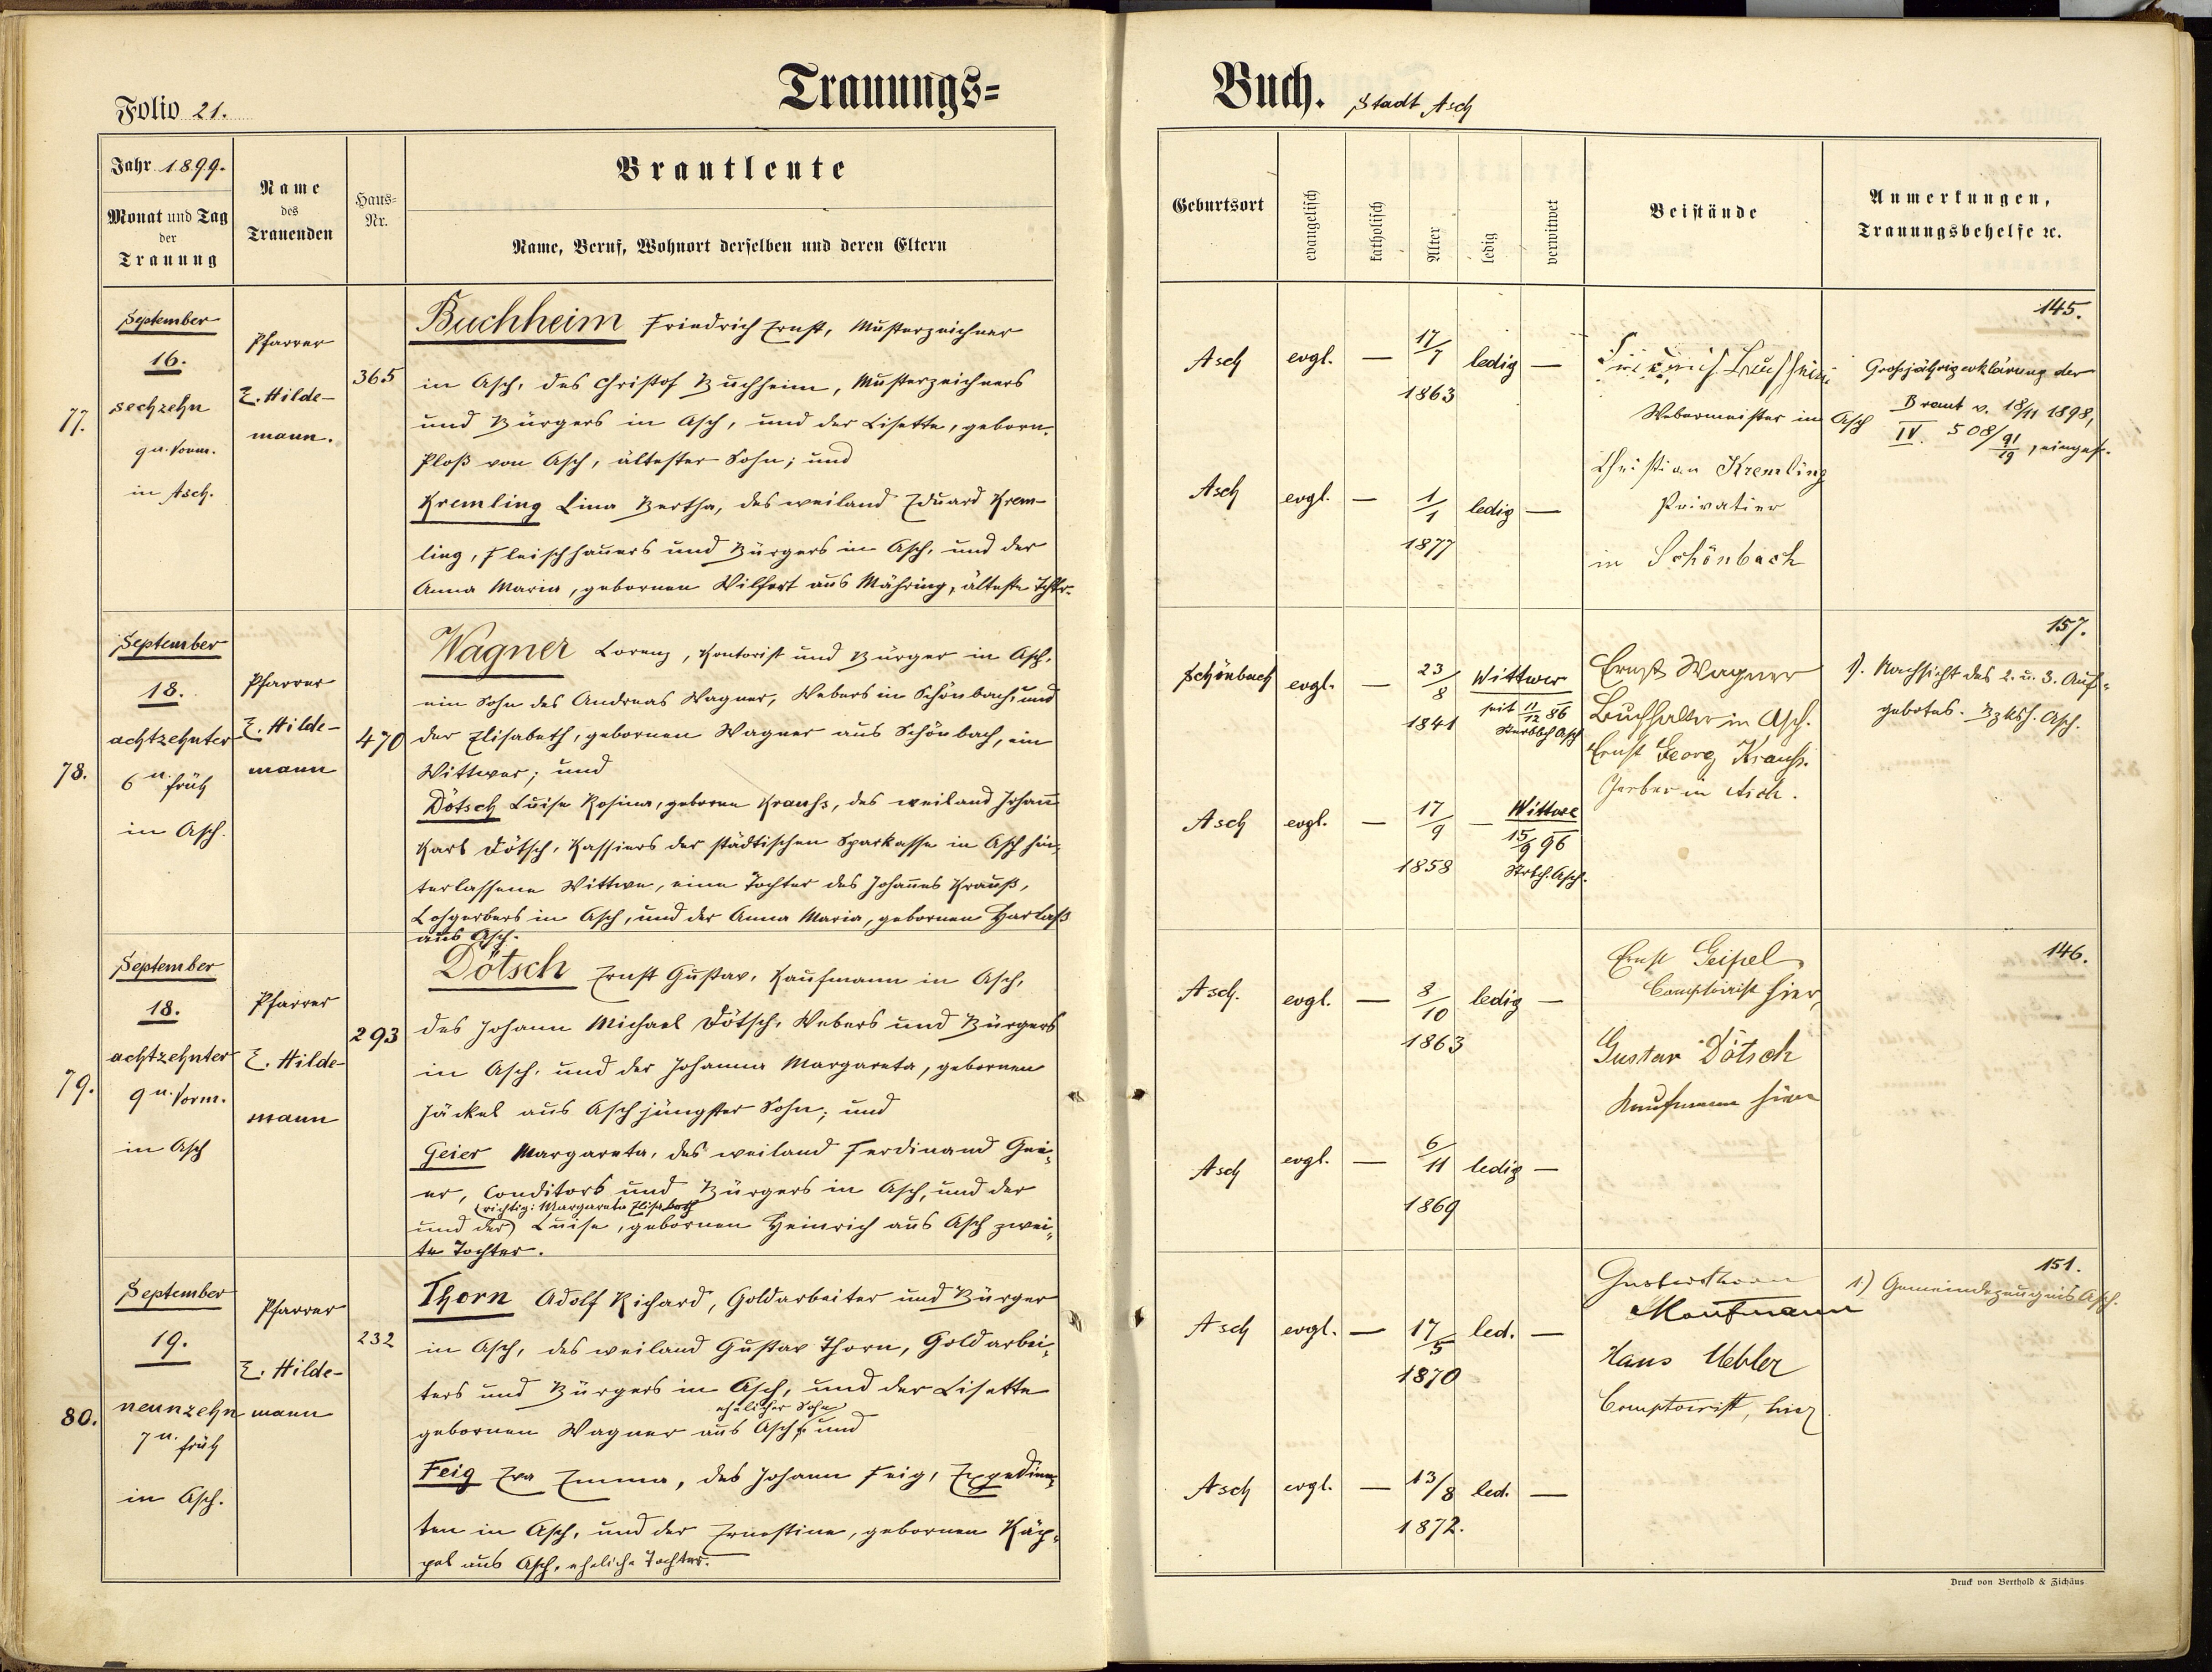 Trauungs=
Folio 21.
Jahr 1899.
Monat und Tag
der
Trauung
Name
des
Trauenden
Haus-
Nr.
Brautleute
Name, Beruf, Wohnort derselben und deren Eltern
77.
September
16.
sechzehn
9 u. Vorm.
in Asch.
Pfarrer
E. Hilde-
mann.
365
Buchheim Friedrich Ernst, Musterzeichner
in Asch, des Christof Buchheim, Musterzeichners
und Bürgers in Asch, und der Lisette, geborn.
Ploß von Asch, ältester Sohn; und
Kremling Lina Bertha, des weiland Eduard Krem-
ling, Fleischhauers und Bürgers in Asch, und der
Anna Maria, gebornen Wilfert aus Mähring, älteste Tchtr.
78.
September
18.
achtzehnter
6 u. früh
in Asch.
Pfarrer
E. Hilde-
mann
470
Wagner Lorenz, Kontorist und Bürger in Asch,
ein Sohn des Andreas Wagner, Webers in Schönbach, und
der Elisabeth, gebornen Wagner aus Schönbach, ein
Wittwer; und
Dötsch Luise Rosina, geborne Krauß, des weiland Johann
Karl Dötsch, Kassiers der städtischen Sparkasse in Asch hin-
terlassene Wittwe, eine Tochter des Johannes Krauß,
Lohgerbers in Asch, und der Anna Maria, gebornen Harlaß
aus Asch.
79.
September
18.
achtzehnter
9 u. Vorm.
in Asch
Pfarrer
E. Hilde-
mann
293
Dötsch Ernst Gustav, Kaufmann in Asch,
des Johann Michael Dötsch, Webers und Bürgers
in Asch, und der Johanna Margareta, gebornen
Jäckel aus Asch jüngster Sohn; und
Geier Margareta, des weiland Ferdinand Gei-
er, Conditors und Bürgers in Asch, und der
(richtig: Margareta Elisabeth
und der) Luise, gebornen Heinrich aus Asch zwei-
te Tochter.
80.
September
19.
neunzehn
7 u. früh
in Asch.
Pfarrer
E. Hilde-
mann
232
Thorn Adolf Richard, Goldarbeiter und Bürger
in Asch, des weiland Gustav Thorn, Goldarbei-
ters und Bürgers in Asch, und der Lisette
ehelicher Sohn
gebornen Wagner aus Asch; und
Feig Eva Emma, des Johann Feig, Expedien-
ten in Asch, und der Ernestine, gebornen Käp-
pel aus Asch, eheliche Tochter.
Buch. Stadt Asch
Geburtsort
evangelisch
katholisch
Alter
ledig
verwitwet
Beistände
Anmerkungen,
Trauungsbehelfe ꝛc.
Asch evgl. — 17/7 1863 ledig —
Friedrich Buchheim
Webermeister in Asch
145.
Grosjährigerklärung der
Braut v. 18/11 1898,
IV. 508/91
19
Asch evgl. — 1/1 1877 ledig —
Christian Kremling
Privatier
in Schönbach
Schönbach evgl. — 23/8 1841 Wittwer
seit 11/12 86
Sterbbch Asch
Ernst Wagner
Buchhalter in Asch.
Ernst Georg Krauß.
Gerber in Asch.
157.
1). Nachsicht des 2. u. 3. Auf-
gebotes. Bzksh. Asch.
Asch evgl. — 17/9 1858 — Wittwe
15/9 96
Strbch. Asch.
Asch. evgl. — 8/10 1863 ledig —
Ernst Geipel
Comptoirist hier,
Gustav Dötsch
Kaufmann hier
146.
Asch evgl. — 6/11 1869 ledig —
Asch evgl. — 17/5 1870 led. —
Gustav Thorn
Kaufmann
Hans Uebler
Comptoirist, hier
151.
1.) Gemeindezeugnis Asch.
Asch evgl. — 13/8 1872. led. —
Druck von Berthold & Zichäus